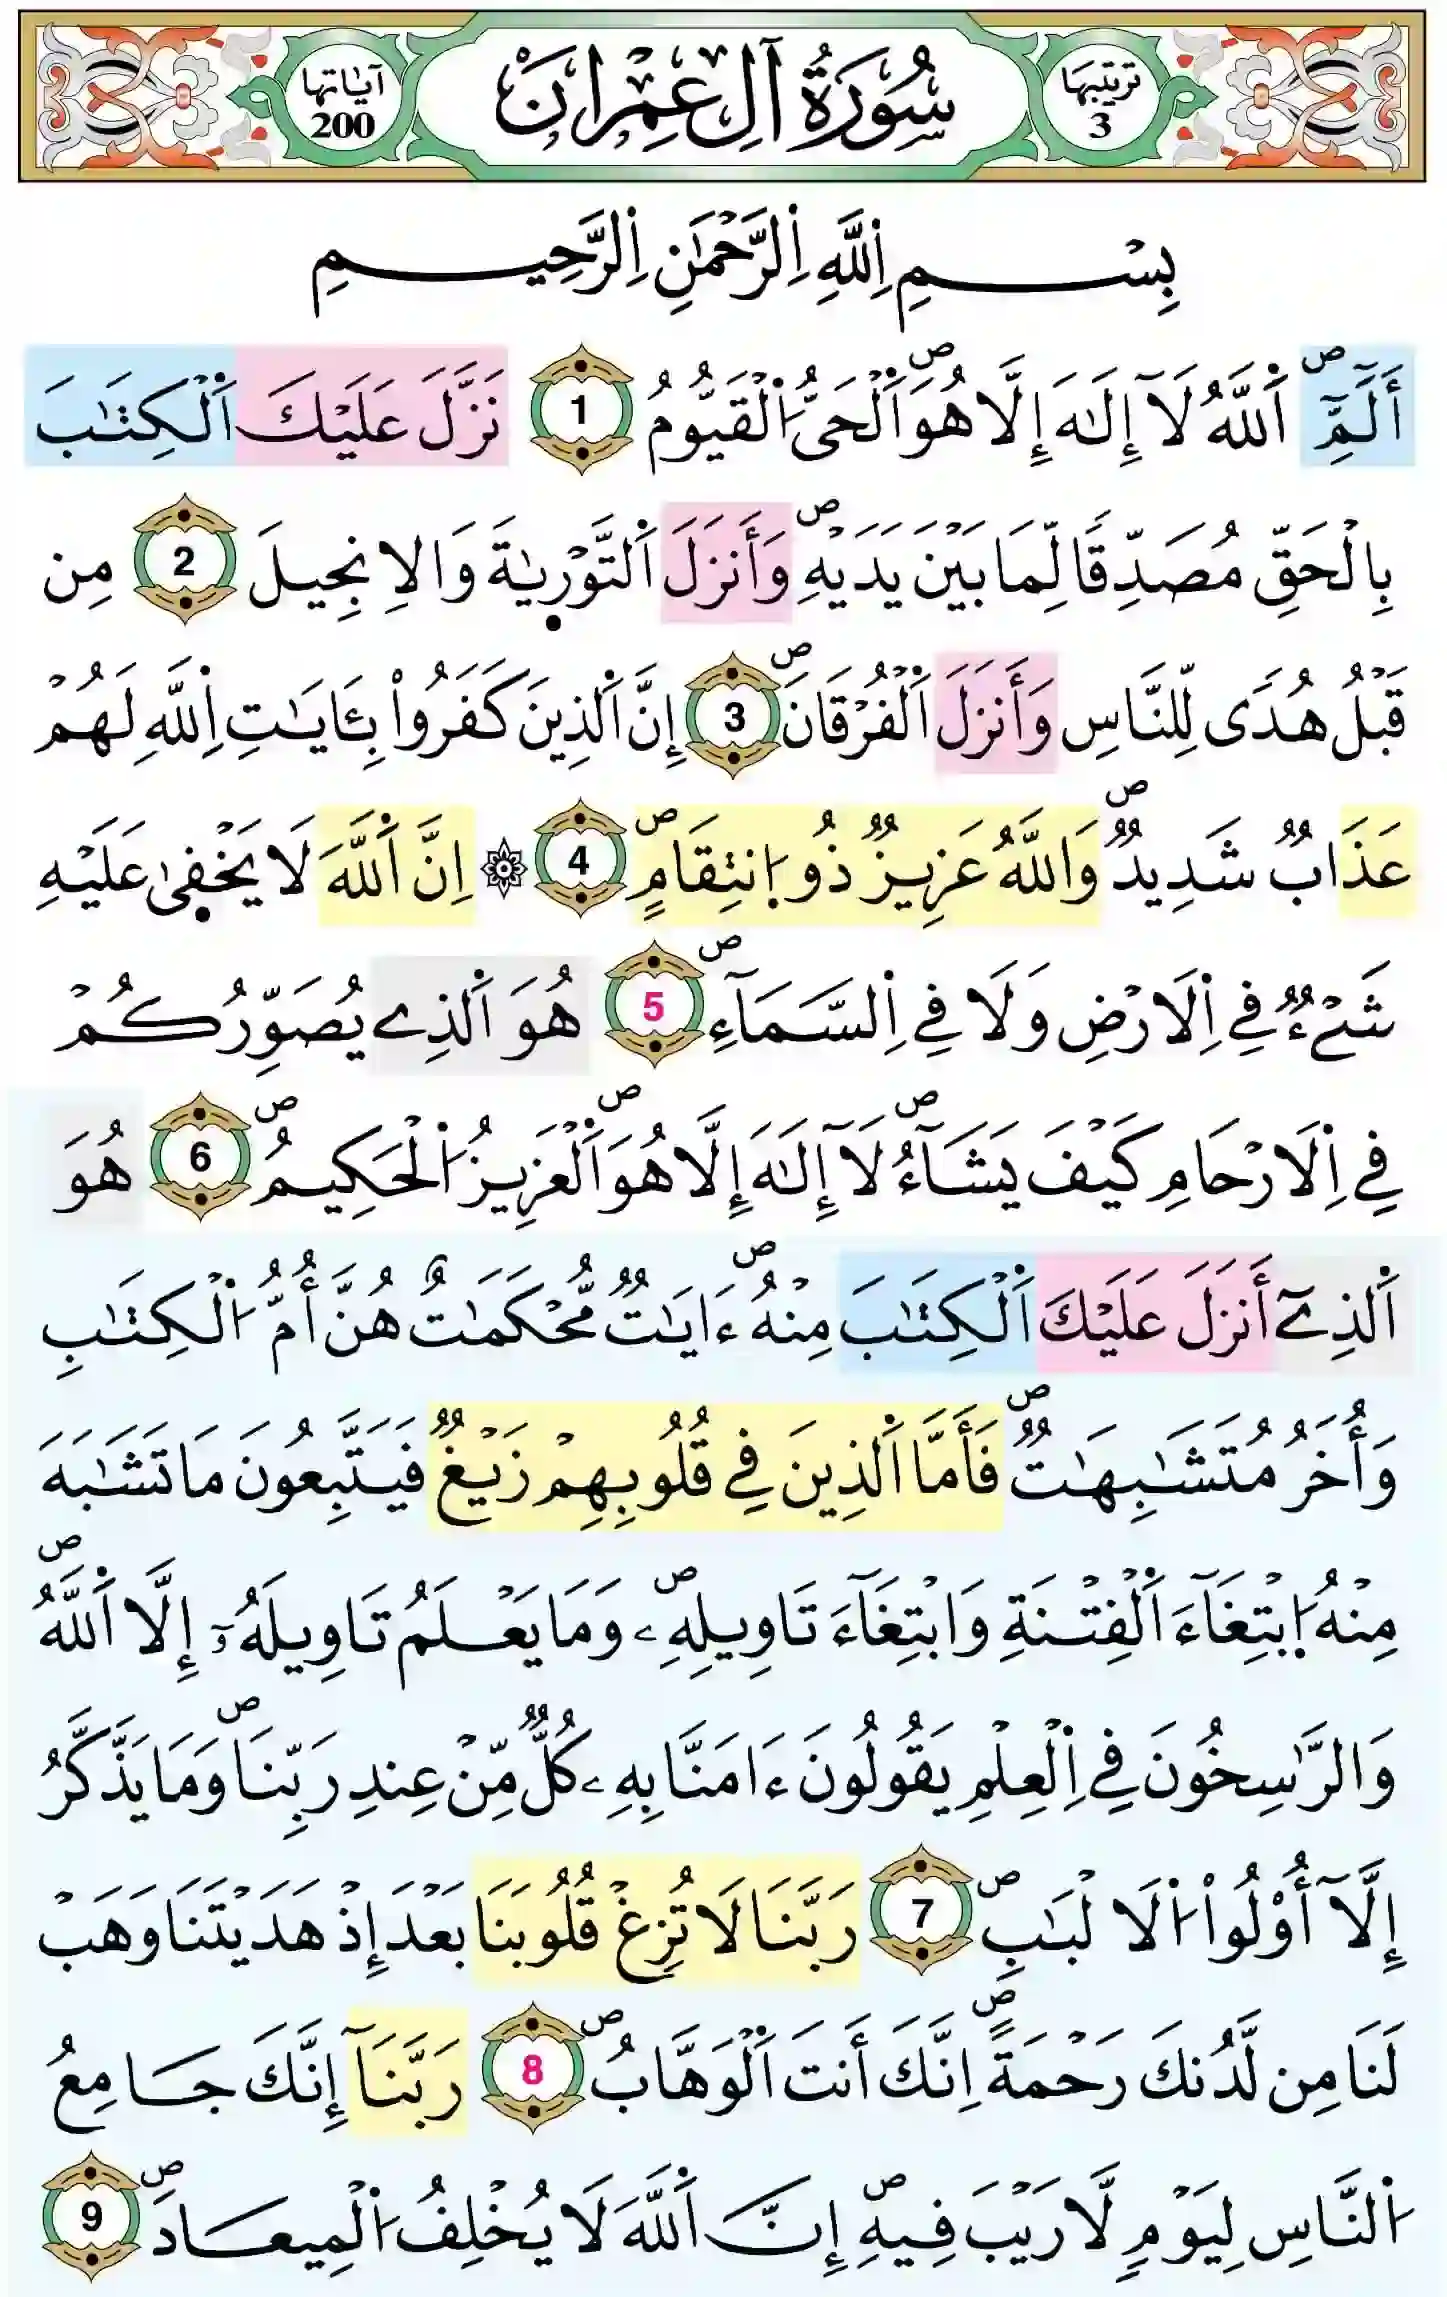 ترتيبها 3 سُورَةُ آلِ عِمْرَانَ آياتها 200
بِسْمِ اِللَّهِ اِلرَّحْمَٰنِ اِلرَّحِيمِ
أَلَٓمِّٓۖ اَ۬للَّهُ لَآ إِلَٰهَ إِلَّا هُوَۖ اَ۬لْحَيُّ اُ۬لْقَيُّومُ 1 نَزَّلَ عَلَيْكَ اَ۬لْكِتَٰبَ
بِالْحَقِّ مُصَدِّقاٗ لِّمَا بَيْنَ يَدَيْهِۖ وَأَنزَلَ اَ۬لتَّوْر۪يٰةَ وَالِانجِيلَ 2 مِن
قَبْلُ هُديٗ لِّلنَّاسِ وَأَنزَلَ اَ۬لْفُرْقَانَۖ 3 إِنَّ اَ۬لذِينَ كَفَرُواْ بِـَٔايَٰتِ اِ۬للَّهِ لَهُمْ
عَذَابٞ شَدِيدٞۖ وَاللَّهُ عَزِيزٞ ذُو اُ۪نتِقَامٍۖ 4 ۞ اِنَّ اَ۬للَّهَ لَا يَخْف۪يٰ عَلَيْهِ
شَےْءٞ فِے اِ۬لَارْضِ وَلَا فِے اِ۬لسَّمَآءِۖ 5 هُوَ اَ۬لذِے يُصَوِّرُكُمْ
فِے اِ۬لَارْحَامِ كَيْفَ يَشَآءُۖ لَآ إِلَٰهَ إِلَّا هُوَۖ اَ۬لْعَزِيزُ اُ۬لْحَكِيمُۖ 6 هُوَ
اَ۬لذِےٓ أَنزَلَ عَلَيْكَ اَ۬لْكِتَٰبَ مِنْهُۖ ءَايَٰتٞ مُّحْكَمَٰتٌ هُنَّ أُمُّ اُ۬لْكِتَٰبِ
وَأُخَرُ مُتَشَٰبِهَٰتٞۖ فَأَمَّا اَ۬لذِينَ فِے قُلُوبِهِمْ زَيْغٞ فَيَتَّبِعُونَ مَا تَشَٰبَهَ
مِنْهُ اُ۪بْتِغَآءَ اَ۬لْفِتْنَةِ وَابْتِغَآءَ تَاوِيلِهِۦۖ وَمَا يَعْلَمُ تَاوِيلَهُۥٓ إِلَّا اَ۬للَّهُۖ
وَالرَّٰسِخُونَ فِے اِ۬لْعِلْمِ يَقُولُونَ ءَامَنَّا بِهِۦ كُلّٞ مِّنْ عِندِ رَبِّنَاۖ وَمَا يَذَّكَّرُ
إِلَّآ أُوْلُواْ اُ۬لَالْبَٰبِۖ 7 رَبَّنَا لَا تُزِغْ قُلُوبَنَا بَعْدَ إِذْ هَدَيْتَنَا وَهَبْ
لَنَا مِن لَّدُنكَ رَحْمَةًۖ اِنَّكَ أَنتَ اَ۬لْوَهَّابُۖ 8 رَبَّنَآ إِنَّكَ جَامِعُ
اُ۬لنَّاسِ لِيَوْمٖ لَّا رَيْبَ فِيهِۖ إِنَّ اَ۬للَّهَ لَا يُخْلِفُ اُ۬لْمِيعَادَۖ 9